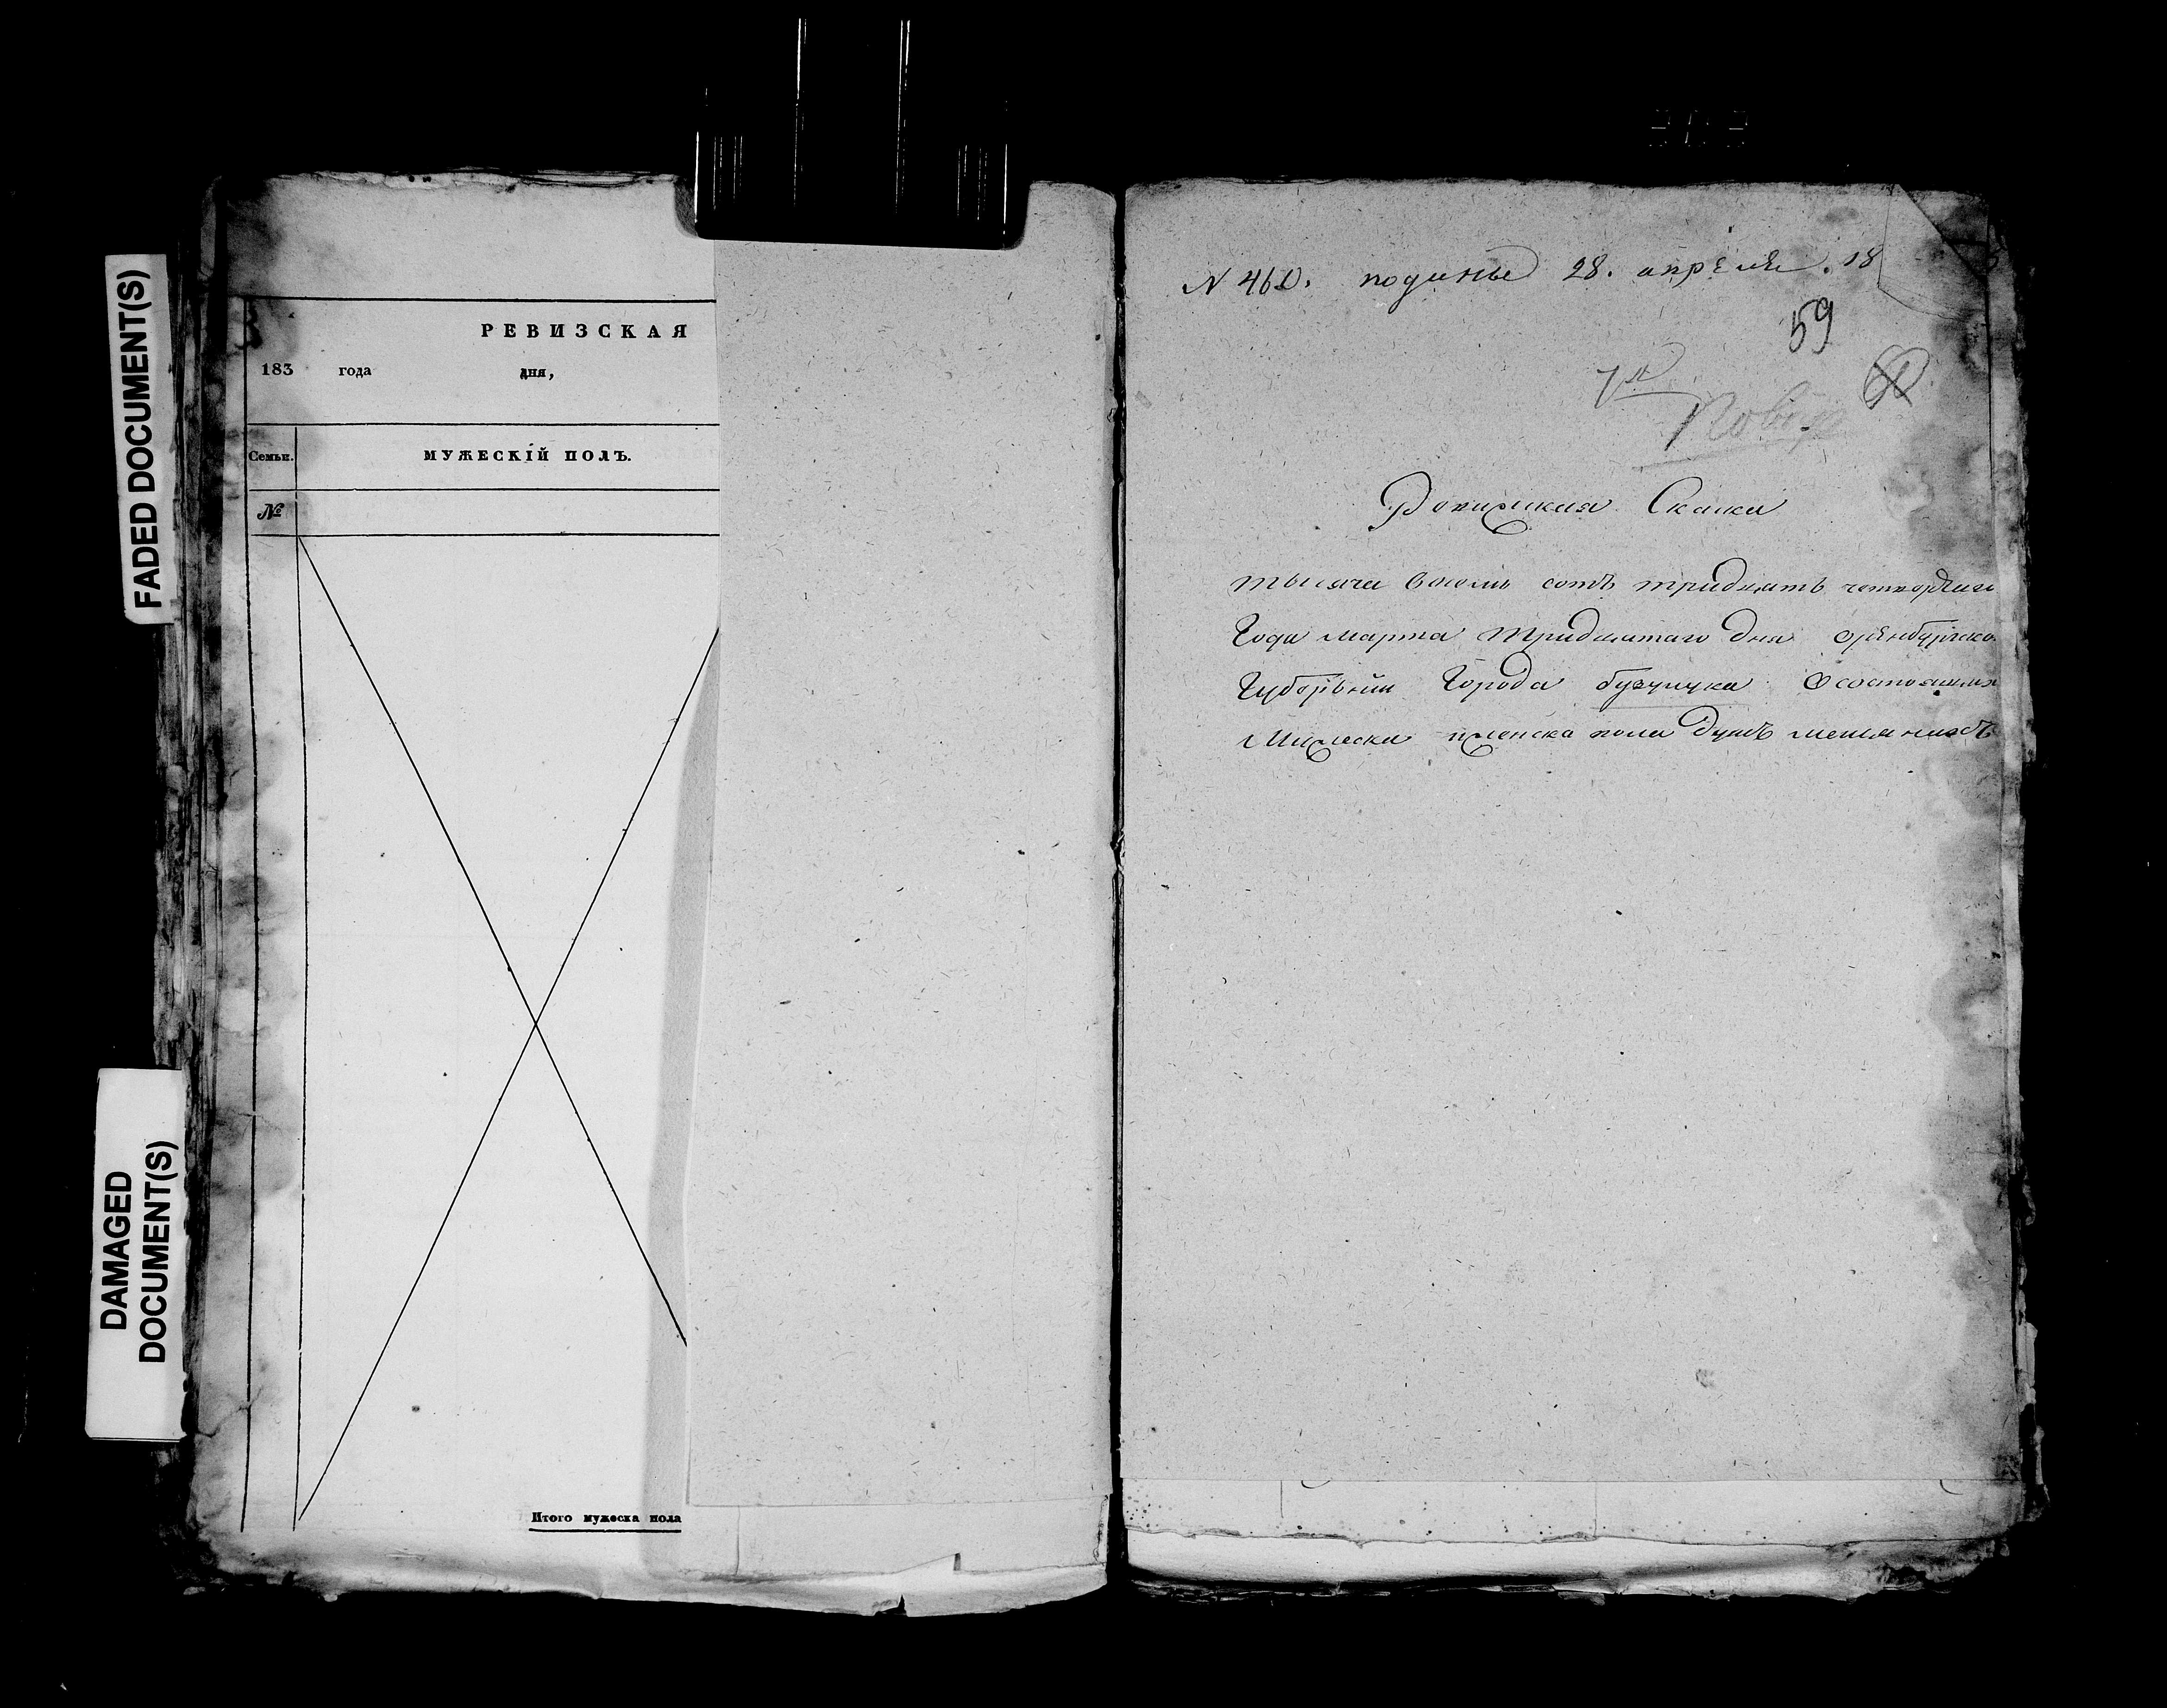 FADED DOCUMENT(S)
DAMAGED
DOCUMENT(S)
РЕВИЗСКАЯ
183 года дня,
Семьи. МУЖЕСКІЙ ПОЛЪ.
№
Итого мужеска пола
N 460. поданы 28. апреля. 18
59
Ревижская Скаска
тысяча восемь сотъ тридцать четвертаго
Года марта тридцатаго дня оренбургско
Губерьнии Города бузулука Осостоящихъ
Мужеска иженска пола душъ мещанахъ